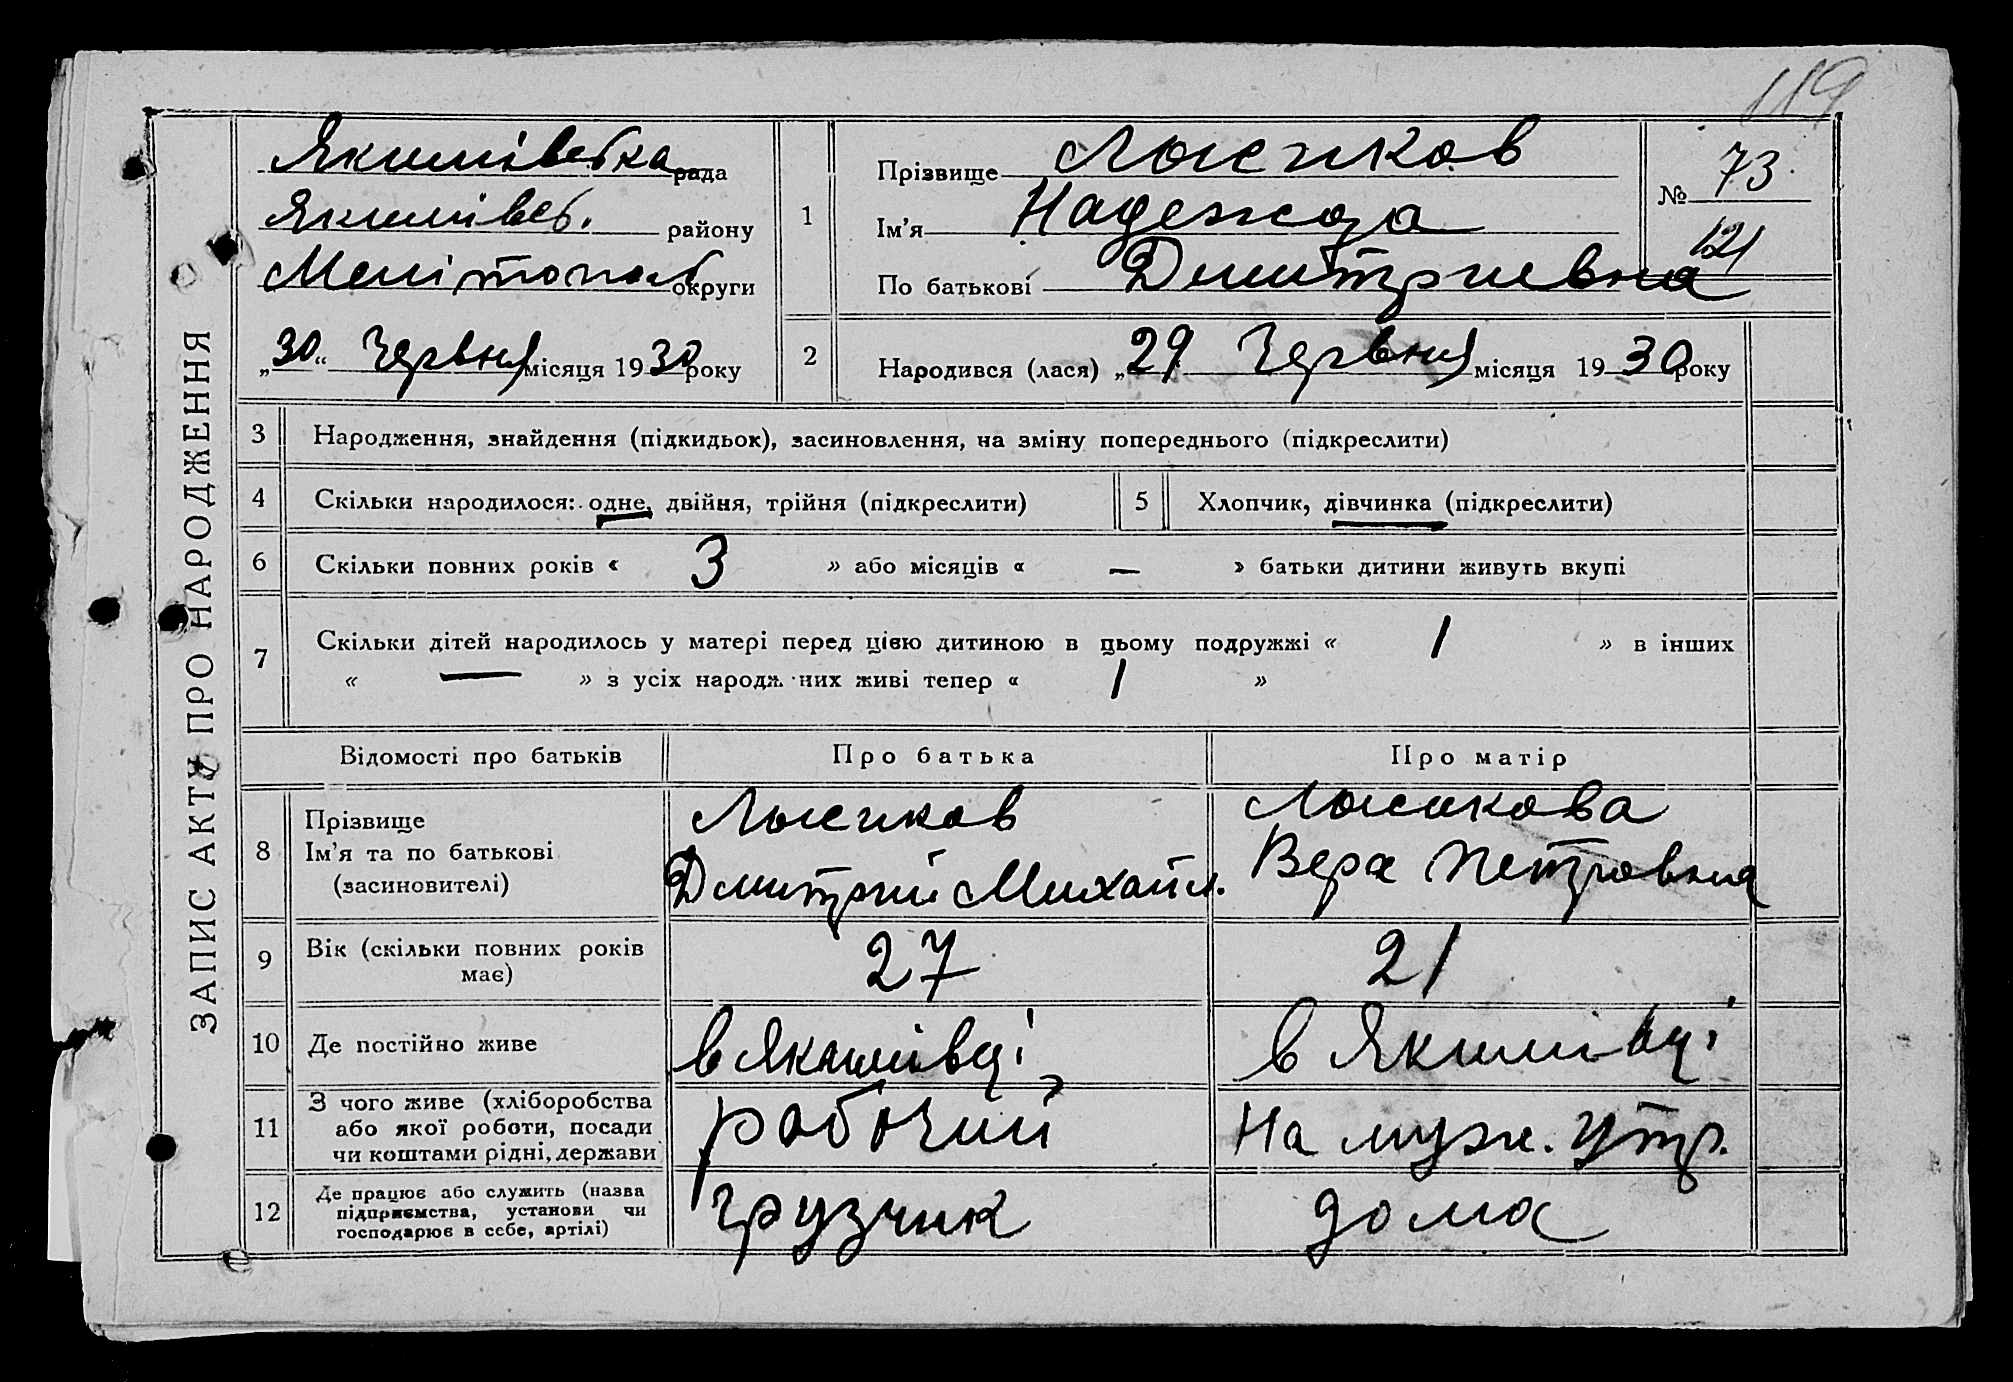 119
ЗАПИС АКТУ ПРО НАРОДЖЕННЯ
Якимівська рада
Якимівсь. району
Мелітопол округи
„30“ Червня місяця 1930 року
1
Прізвище Лысиков
Ім’я Надежда
По батькові Дмитриевна
№ 73
121
2 Народився (лася) „29 Червня місяця 1930 року
3 Народження, знайдення (підкидьок), засиновлення, на зміну попереднього (підкреслити)
4 Скільки народилося: одне, двійня, трійня (підкреслити)
5 Хлопчик, дівчинка (підкреслити)
6 Скільки повних років « 3 » або місяців « — » батьки дитини живуть вкупі
7 Скільки дітей народилось у матері перед цією дитиною в цьому подружжі « 1 » в інших
« — » з усіх народж них живі тепер « 1 »
Відомості про батьків Про батька Про матір
8
Прізвище
Ім’я та по батькові
(засиновителі)
Лысиков
Дмитрий Михайл.
Лысикова
Вера Петровна
9
Вік (скільки повних років
має)
27
21
10 Де постійно живе
в Якимівці
в Якимівці
11
З чого живе (хліборобства
або якої роботи, посади
чи коштами рідні, держави
рабочий
На муж. утр.
12
Де працює або служить (назва
підприємства, установи чи
господарює в себе, артілі)
грузчик
дома